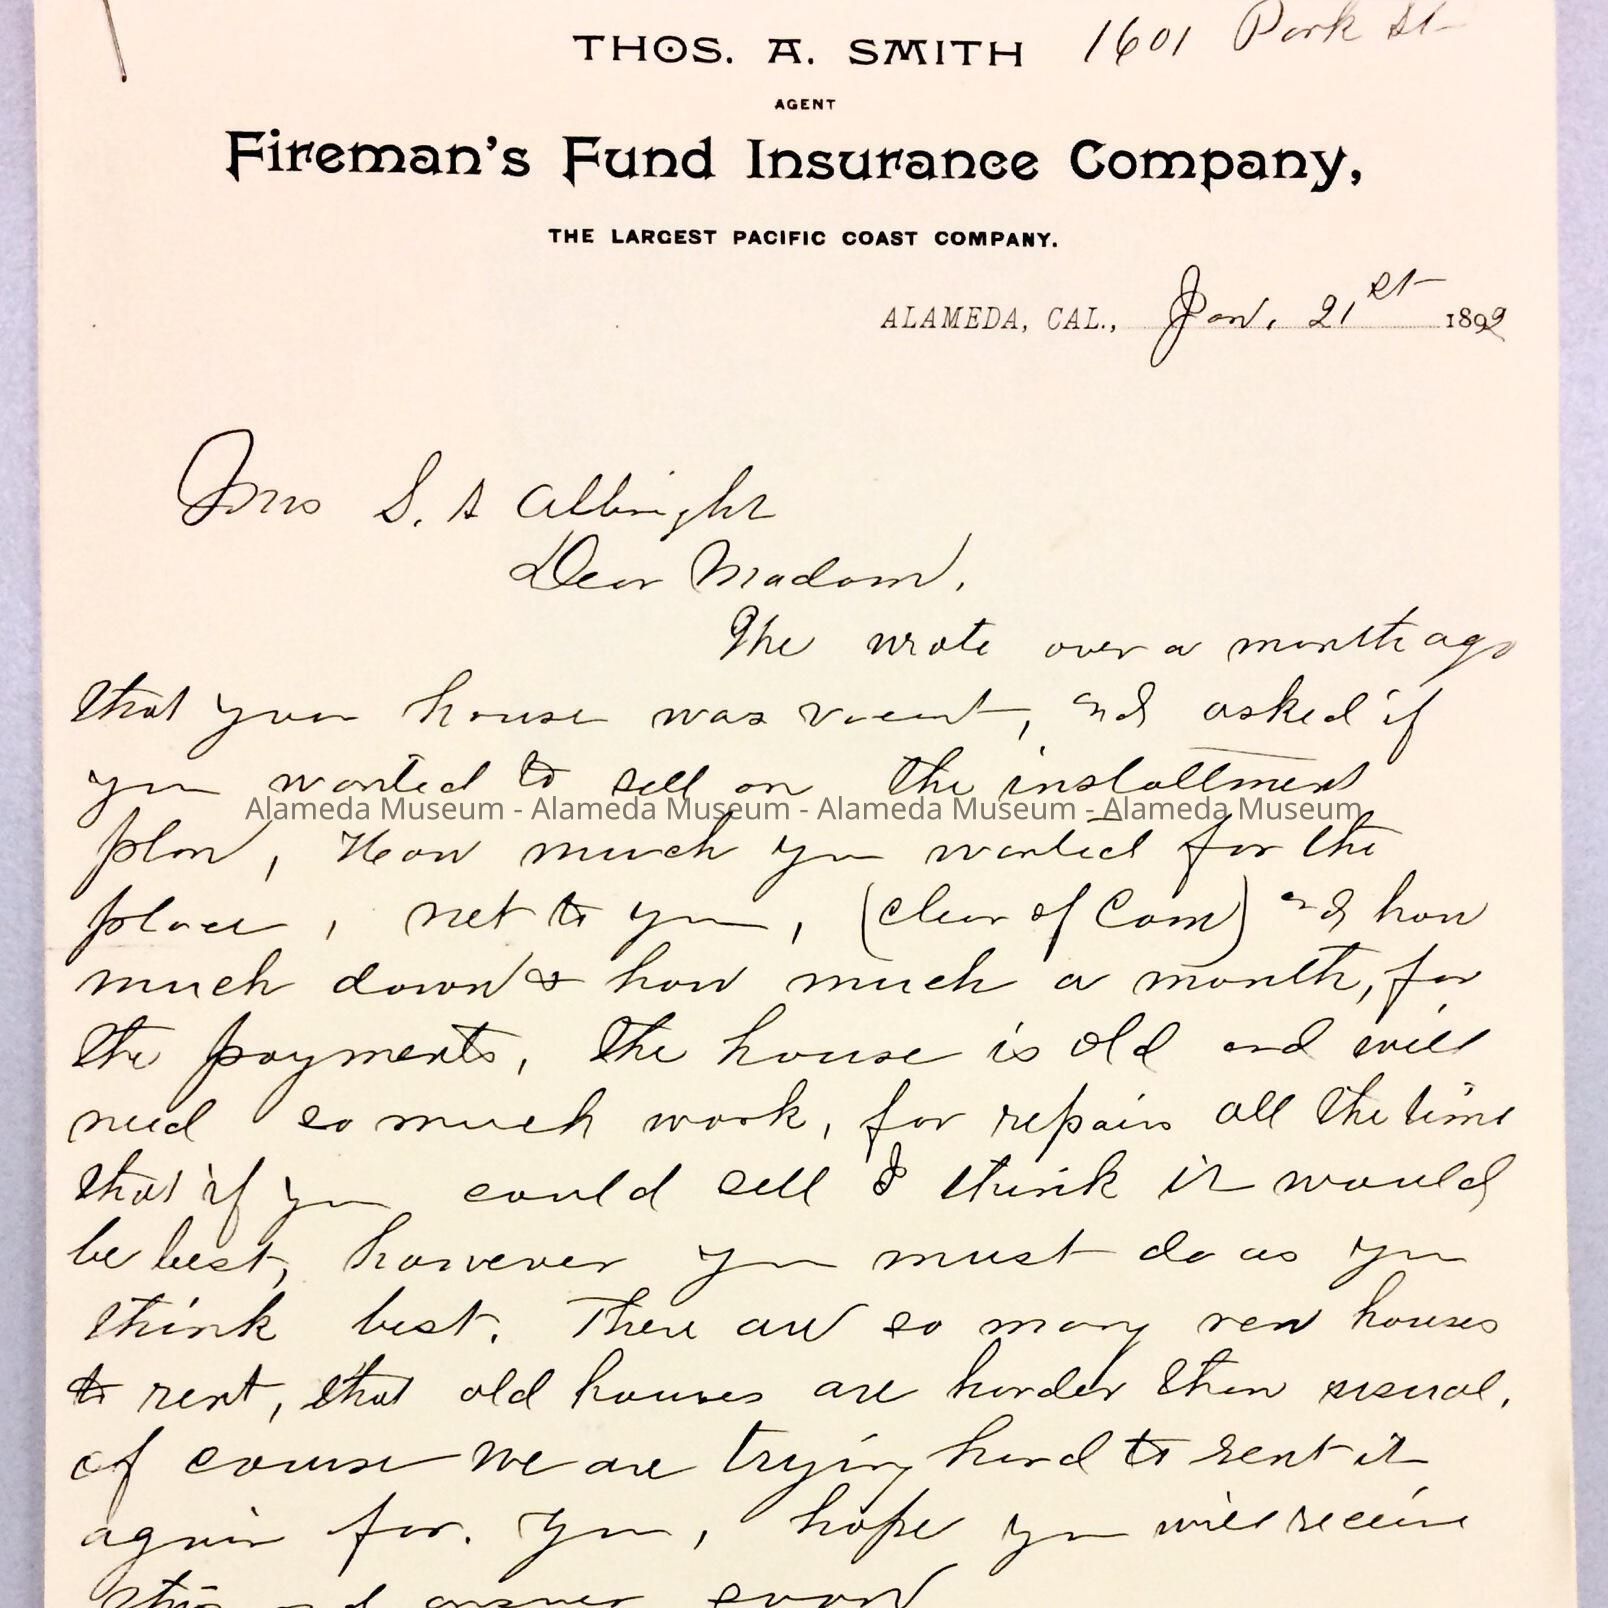 THOS. A. SMITH 1601 Park St
AGENT
Fireman's Fund Insurance Company,
THE LARGEST PACIFIC COAST COMPANY.
ALAMEDA, CAL., Jan. 21st 1899
Mrs S. A Albright
Dear Madam,
We wrote over a month ago
that your house was vacent, and asked if
you wanted to sell on the installment
Alameda Museum - Alameda Museum - Alameda Museum - Alameda Museum
plan, How much you wanted for the
place, net to you, (clear of Com) and how
much down & how much a month, for
the payments, the house is old and will
need so much work, for repairs all the time
that if you could sell I think it would
be best, however you must do as you
think best. There are so many new houses
to rent, that old houses are harder then usual,
of course we are trying hard to rent it
again for. you, hope you will receive
this and answer soon